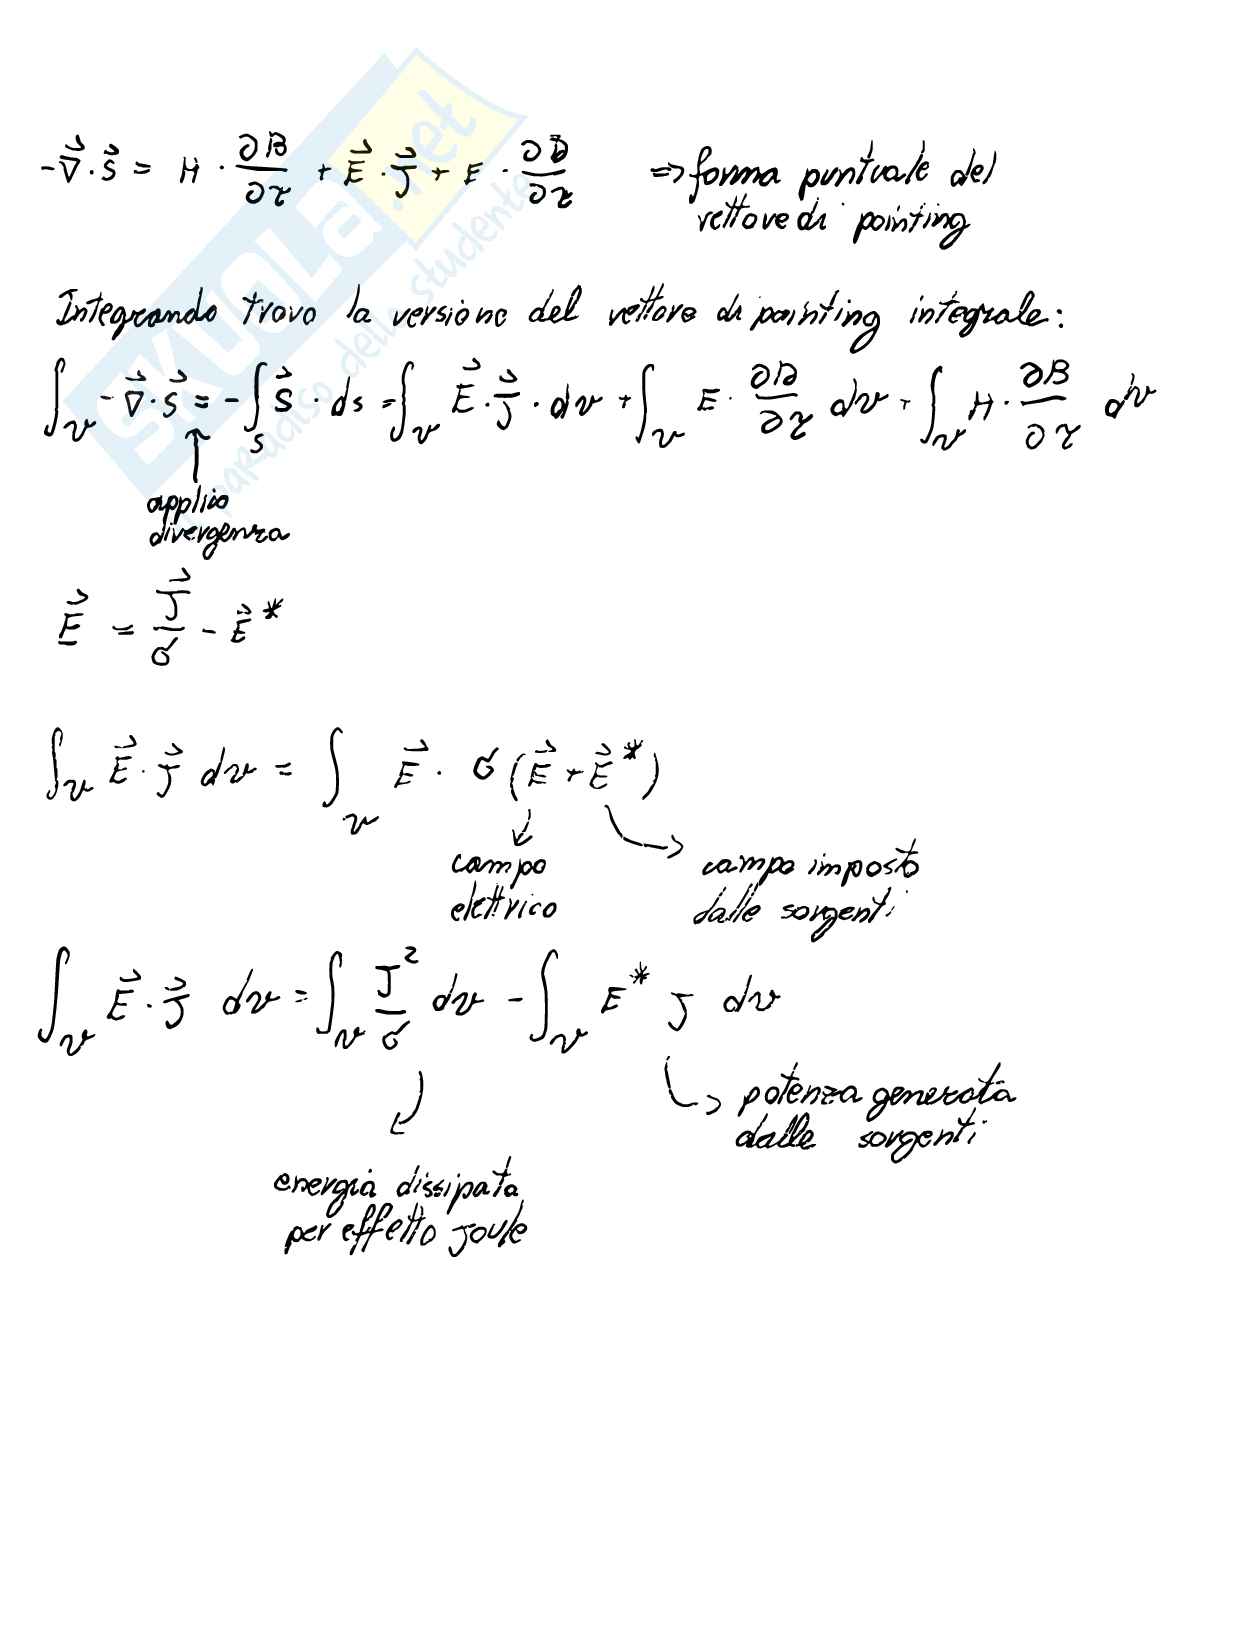 -∇⃗·S⃗ = H · ∂B/∂τ + E⃗·J⃗ + E · ∂D/∂τ => forma puntuale del
vettore di pointing
Integrando trovo la versione del vettore di pointing integrale:
∫_v -∇⃗·S⃗ = -∫_S S⃗ · ds = ∫_v E⃗·J⃗ · dv + ∫_v E · ∂D/∂τ dv + ∫_v H · ∂B/∂τ dv
applico
divergenza
E⃗ = J⃗/σ - E⃗*
∫_v E⃗·J⃗ dv = ∫_v E⃗ · σ (E⃗ + E⃗*)
campo
elettrico
campo imposto
dalle sorgenti
∫_v E⃗·J⃗ dv = ∫_v J²/σ dv - ∫_v E* J dv
potenza generata
dalle sorgenti
energia dissipata
per effetto Joule
SKUOLa.net
paradiso dello studente